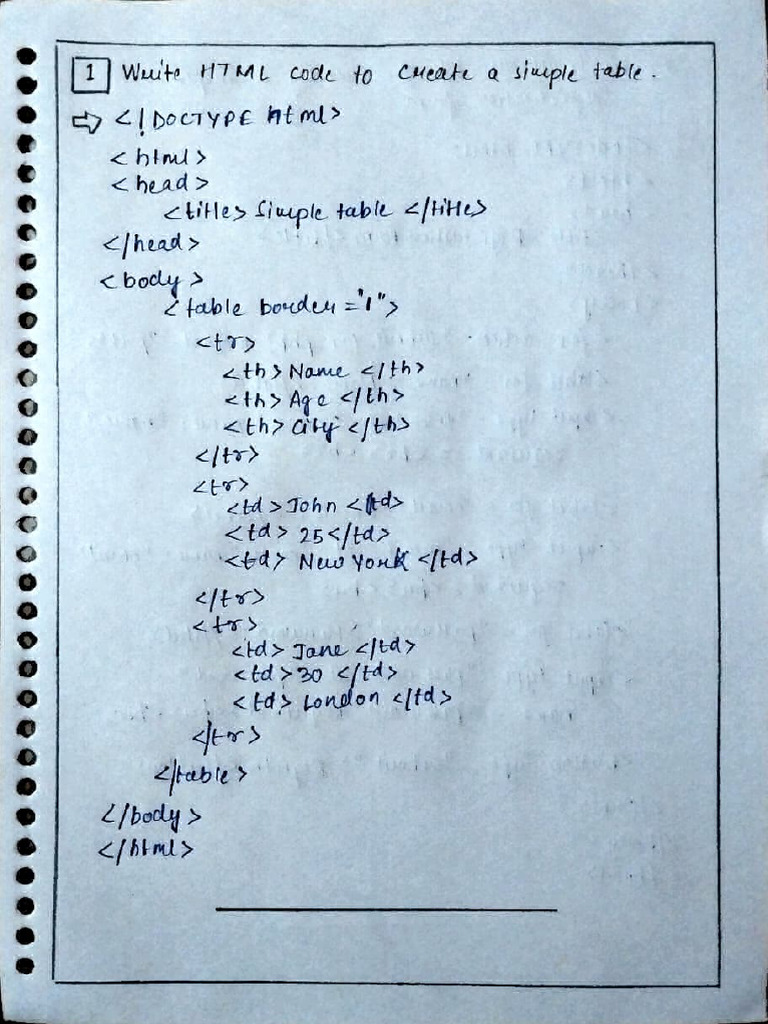 1 Write HTML code to create a simple table.
⇨ <!DOCTYPE html>
<html>
<head>
<title> Simple table </title>
</head>
<body>
<table border="1">
<tr>
<th> Name </th>
<th> Age </th>
<th> City </th>
</tr>
<tr>
<td> John </td>
<td> 25</td>
<td> New York </td>
</tr>
<tr>
<td> Jane </td>
<td> 30 </td>
<td> London </td>
</tr>
</table>
</body>
</html>